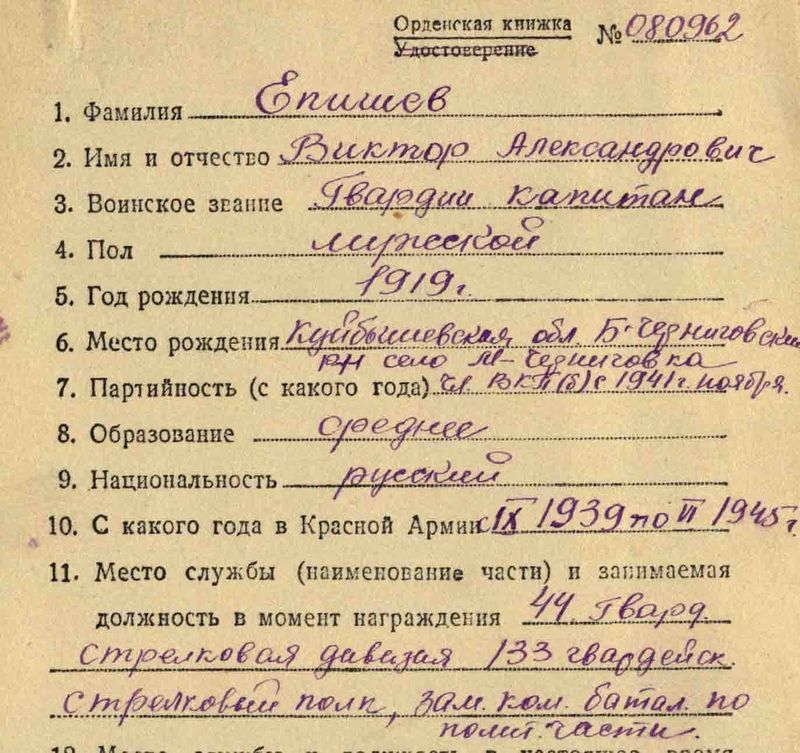 Орденская книжка № 080962
Удостоверение
1. Фамилия Епишев
2. Имя и отчество Виктор Александрович
3. Воинское звание Гвардии капитан
4. Пол мужской
5. Год рождения 1919 г.
6. Место рождения Куйбышевская обл. Б-Черниговский
рн село М-Черниговка
7. Партийность (с какого года) чл. ВКП(б) с 1941 г. ноября.
8. Образование среднее
9. Национальность русский
10. С какого года в Красной Армии с IX 1939 по VI 1945 г
11. Место службы (наименование части) и занимаемая
должность в момент награждения 44 Гвард.
Стрелковая дивизия 133 гвардейск.
Стрелковый полк, зам. ком. батал. по
полит. части.